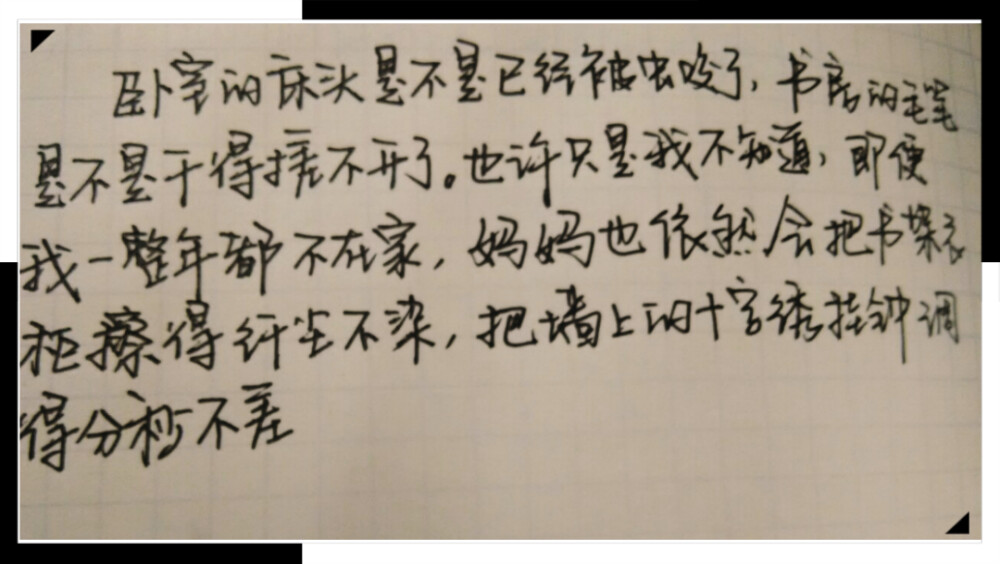 卧室的床头是不是已经被虫咬了，书房的毛笔
是不是干得搓不开了。也许只是我不知道，即便
我一整年都不在家，妈妈也依然会把书架衣
柜擦得纤尘不染，把墙上的十字绣挂钟调
得分秒不差